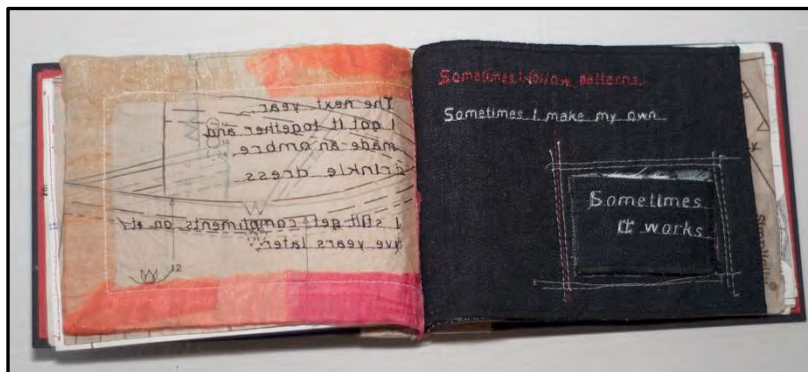 The next year
I got it together and
made an ombre
crinkle dress
I still get compliments on it
five years later.
12
Sometimes I follow patterns.
Sometimes I make my own.
Sometimes
it works